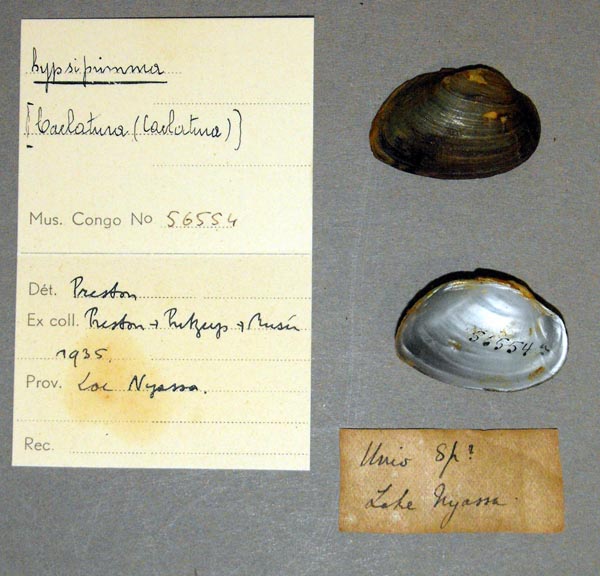 hypsiprymna
[Caelatura (Caelatura)]
Mus. Congo No 56554
Dét. Preston
Ex coll. Preston → Putzeys → Musée
1935.
Prov. Lac Nyassa.
Rec.
56554
Unio Sp?
Lake Nyassa.